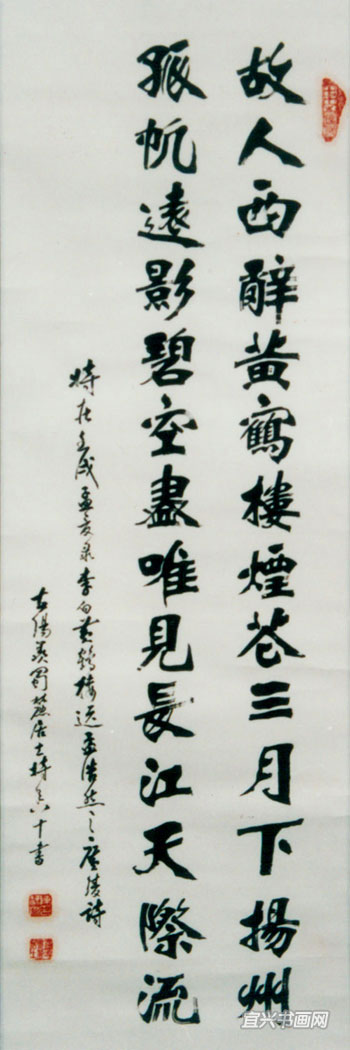 故人西辭黃鶴樓煙花三月下揚州
孤帆遠影碧空盡唯見長江天際流
時在壬戌孟夏录李白黃鶴樓送孟浩然之廣陵詩
古陽羨蜀麓居士時年六十書
宜兴书画网